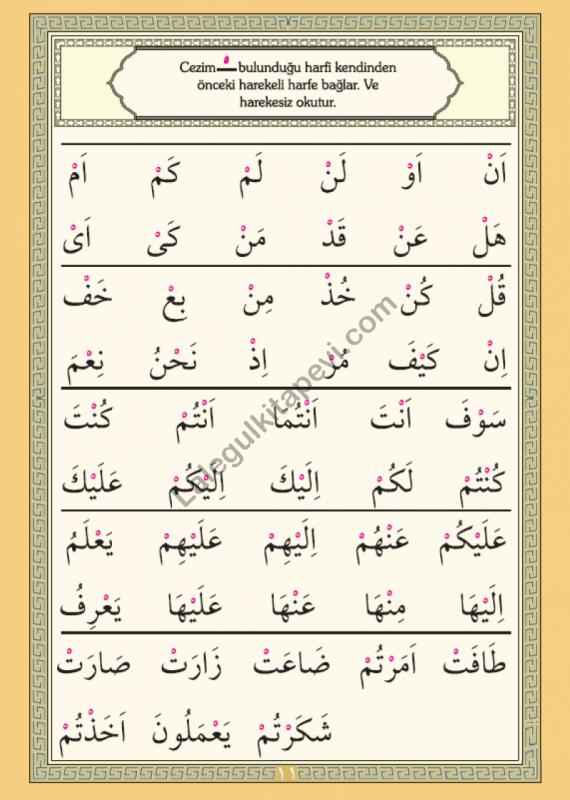 Cezim ــْـ bulunduğu harfi kendinden
önceki harekeli harfe bağlar. Ve
harekesiz okutur.
اَنْ اَوْ لَنْ لَمْ كَمْ اَمْ
هَلْ عَنْ قَدْ مَنْ كَىْ اَىْ
قُلْ كُنْ خُذْ مِنْ بِعْ خَفْ
اِنْ كَيْفَ مُرْ اِذْ نَحْنُ نِعْمَ
سَوْفَ اَنْتَ اَنْتُمَا اَنْتُمْ كُنْتَ
كُنْتُمْ لَكُمْ اِلَيْكَ اِلَيْكُمْ عَلَيْكَ
عَلَيْكُمْ عَنْهُمْ اِلَيْهِمْ عَلَيْهِمْ يَعْلَمُ
اِلَيْهَا مِنْهَا عَنْهَا عَلَيْهَا يَعْرِفُ
طَافَتْ اَمَرْتُمْ ضَاعَتْ زَارَتْ صَارَتْ
شَكَرْتُمْ يَعْمَلُونَ اَخَذْتُمْ
١١
Lalegulkitapevi.com